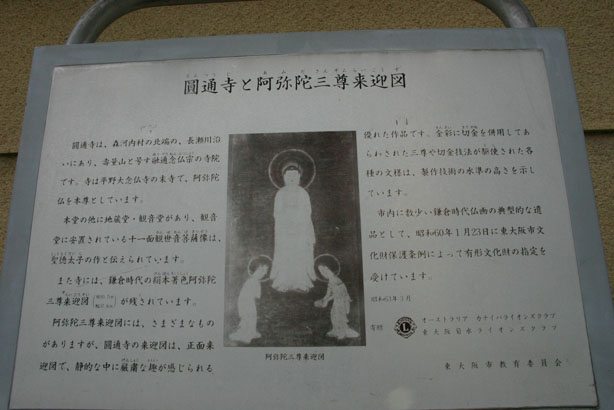 圓通寺と阿弥陀三尊来迎図
圓通寺は、森河内村の北端の、長瀬川沿
いにあり、壽量山と号す融通念仏宗の寺院
です。寺は平野大念仏寺の末寺で、阿弥陀
仏を本尊としています。
本堂の他に地蔵堂・観音堂があり、観音
堂に安置されている十一面観世音菩薩像は、
聖徳太子の作と伝えられています。
また寺には、鎌倉時代の絹本著色阿弥陀
三尊来迎図が残されています。
阿弥陀三尊来迎図には、さまざまなもの
がありますが、圓通寺の来迎図は、正面来
迎図で、静的な中に厳粛な趣が感じられる
阿弥陀三尊来迎図
優れた作品です。金彩に切金を併用してあ
らわされた三尊や切金技法が駆使された各
種の文様は、製作技術の水準の高さを示し
ています。
市内に数少い鎌倉時代仏画の典型的な遺
品として、昭和60年1月23日に東大阪市文
化財保護条例によって有形文化財の指定を
受けています。
昭和63年3月
寄贈
L
オーストラリア カナイバライオンズクラブ
東大阪菊水ライオンズクラブ
東大阪市教育委員会